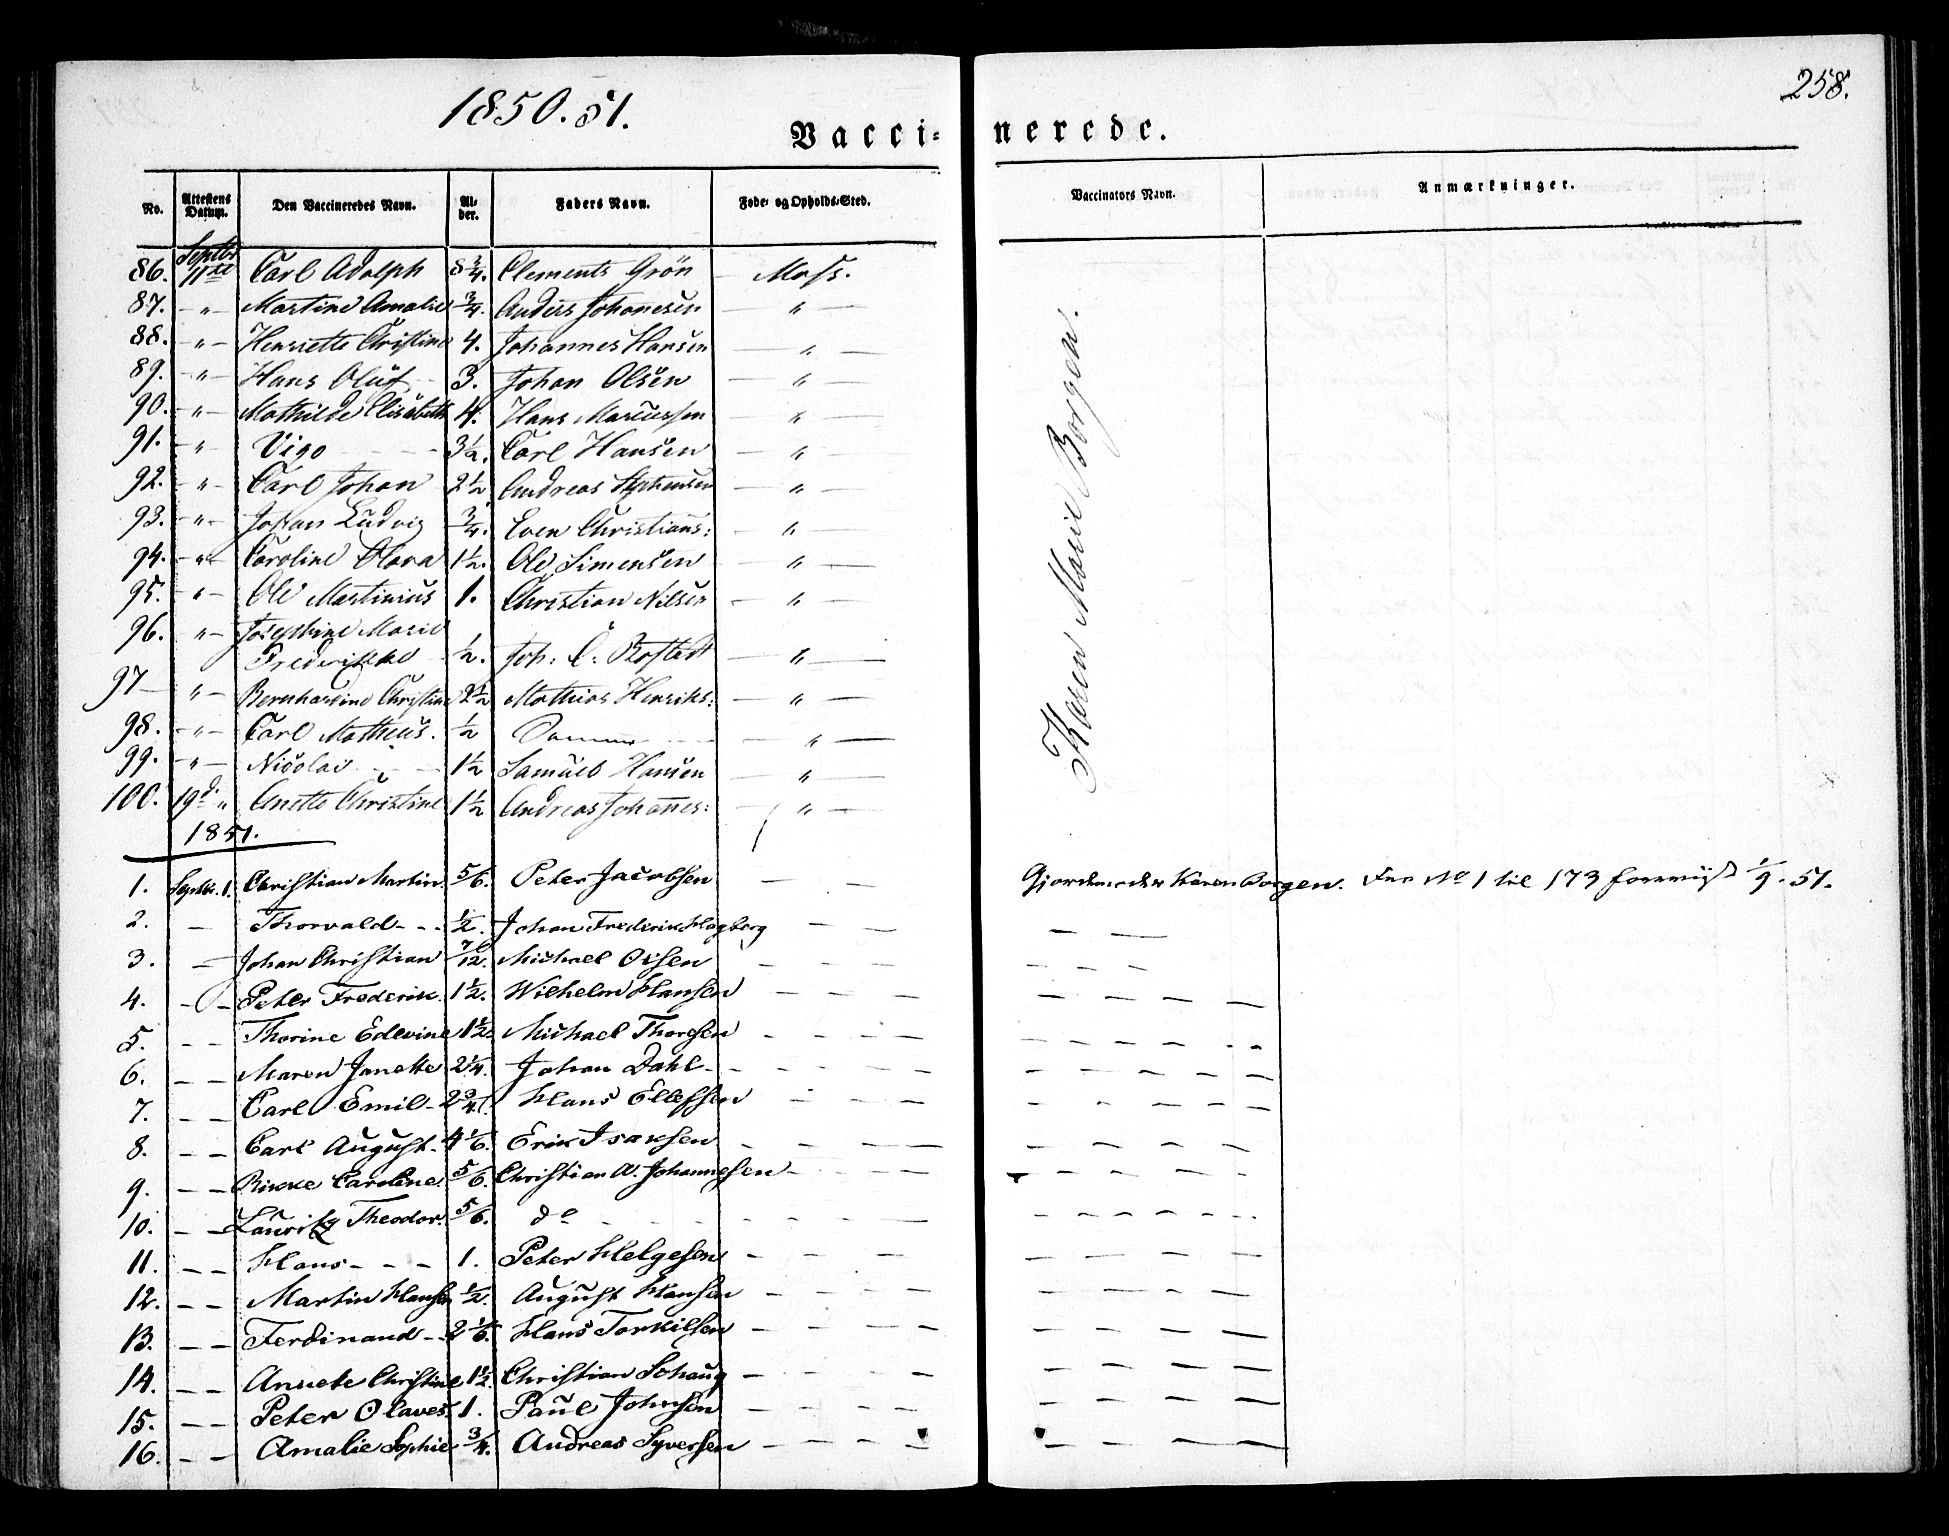 1850. 51.
258.
Vacci= nerede.
No. Attestens Datum. Den Vaccineredes Navn. Al= der. Faders Navn. Føde= og Opholds=Sted. Vaccinators Navn. Anmærkninger.
Septbr
86. 11te Carl Adolph 8 3/4. Clements Grön Moss.
87. " Martine Amalie 3/4. Anders Johanesen "
88. " Henriette Christine 4. Johannes Hansen "
89. " Hans Oluf 3. Johan Olsen "
90. " Mathilde Elisabeth 4. Hans Marcussen "
91. " Vigo 3 1/2. Carl Hansen "
92. " Carl Johan 2 1/2 Andreas "
93. " Johan Ludvig 3/4. Even Christians: "
94. " Caroline Olava 1 1/2. Ole Simensen "
95. " Ole Martinius 1. Christian Nilsen "
96. " Josephine Marie
Frederikke 1/2. Joh: C: "
97 " Bernhardine Christine 2 1/2 Mathias Henriks: "
98. " Carl Matheus. 1/2 Samme "
99. " Nicolai 1 1/2 Samuel Hansen "
100. 19d " Anette Christine 1 1/2 Andreas Johannes: "
Karen Marie Borgen.
1851.
1. Septbr. 1. Christian Martin 5/6. Peter Jacobsen Gjordemoder Karen Borgen. Fra No 1 til 173 1/9. 51.
2. Thorvald 1/2. Johan Frederik Hagberg
3. Johan Christian 7/12. Michael Olsen
4. Peter Frederik 1 1/2. Wilhelm Hansen
5. Thorine Edevine 1 1/2. Michael Thoresen
6. Maren Janette 2 1/4. Johan Dahl
7. Carl Emil 2 3/4. Hans Ellefsen
8. Carl August 4 1/6. Erik Isaksen
9. Rikke Caroline 5/6. Christian A. Johannesen
10. Lauritz Theodor 5/6. do
11. Hans 1. Peter Helgesen
12. Martin Hansen 1/2. August Hansen
13. Ferdinand 2 1/6. Hans Torkilsen
14. Annete Christine 1 1/2. Christian Schaug
15. Peter Olaves 1. Paul Johnsen
16. Amalie Sophie 3/4. Andreas Syversen